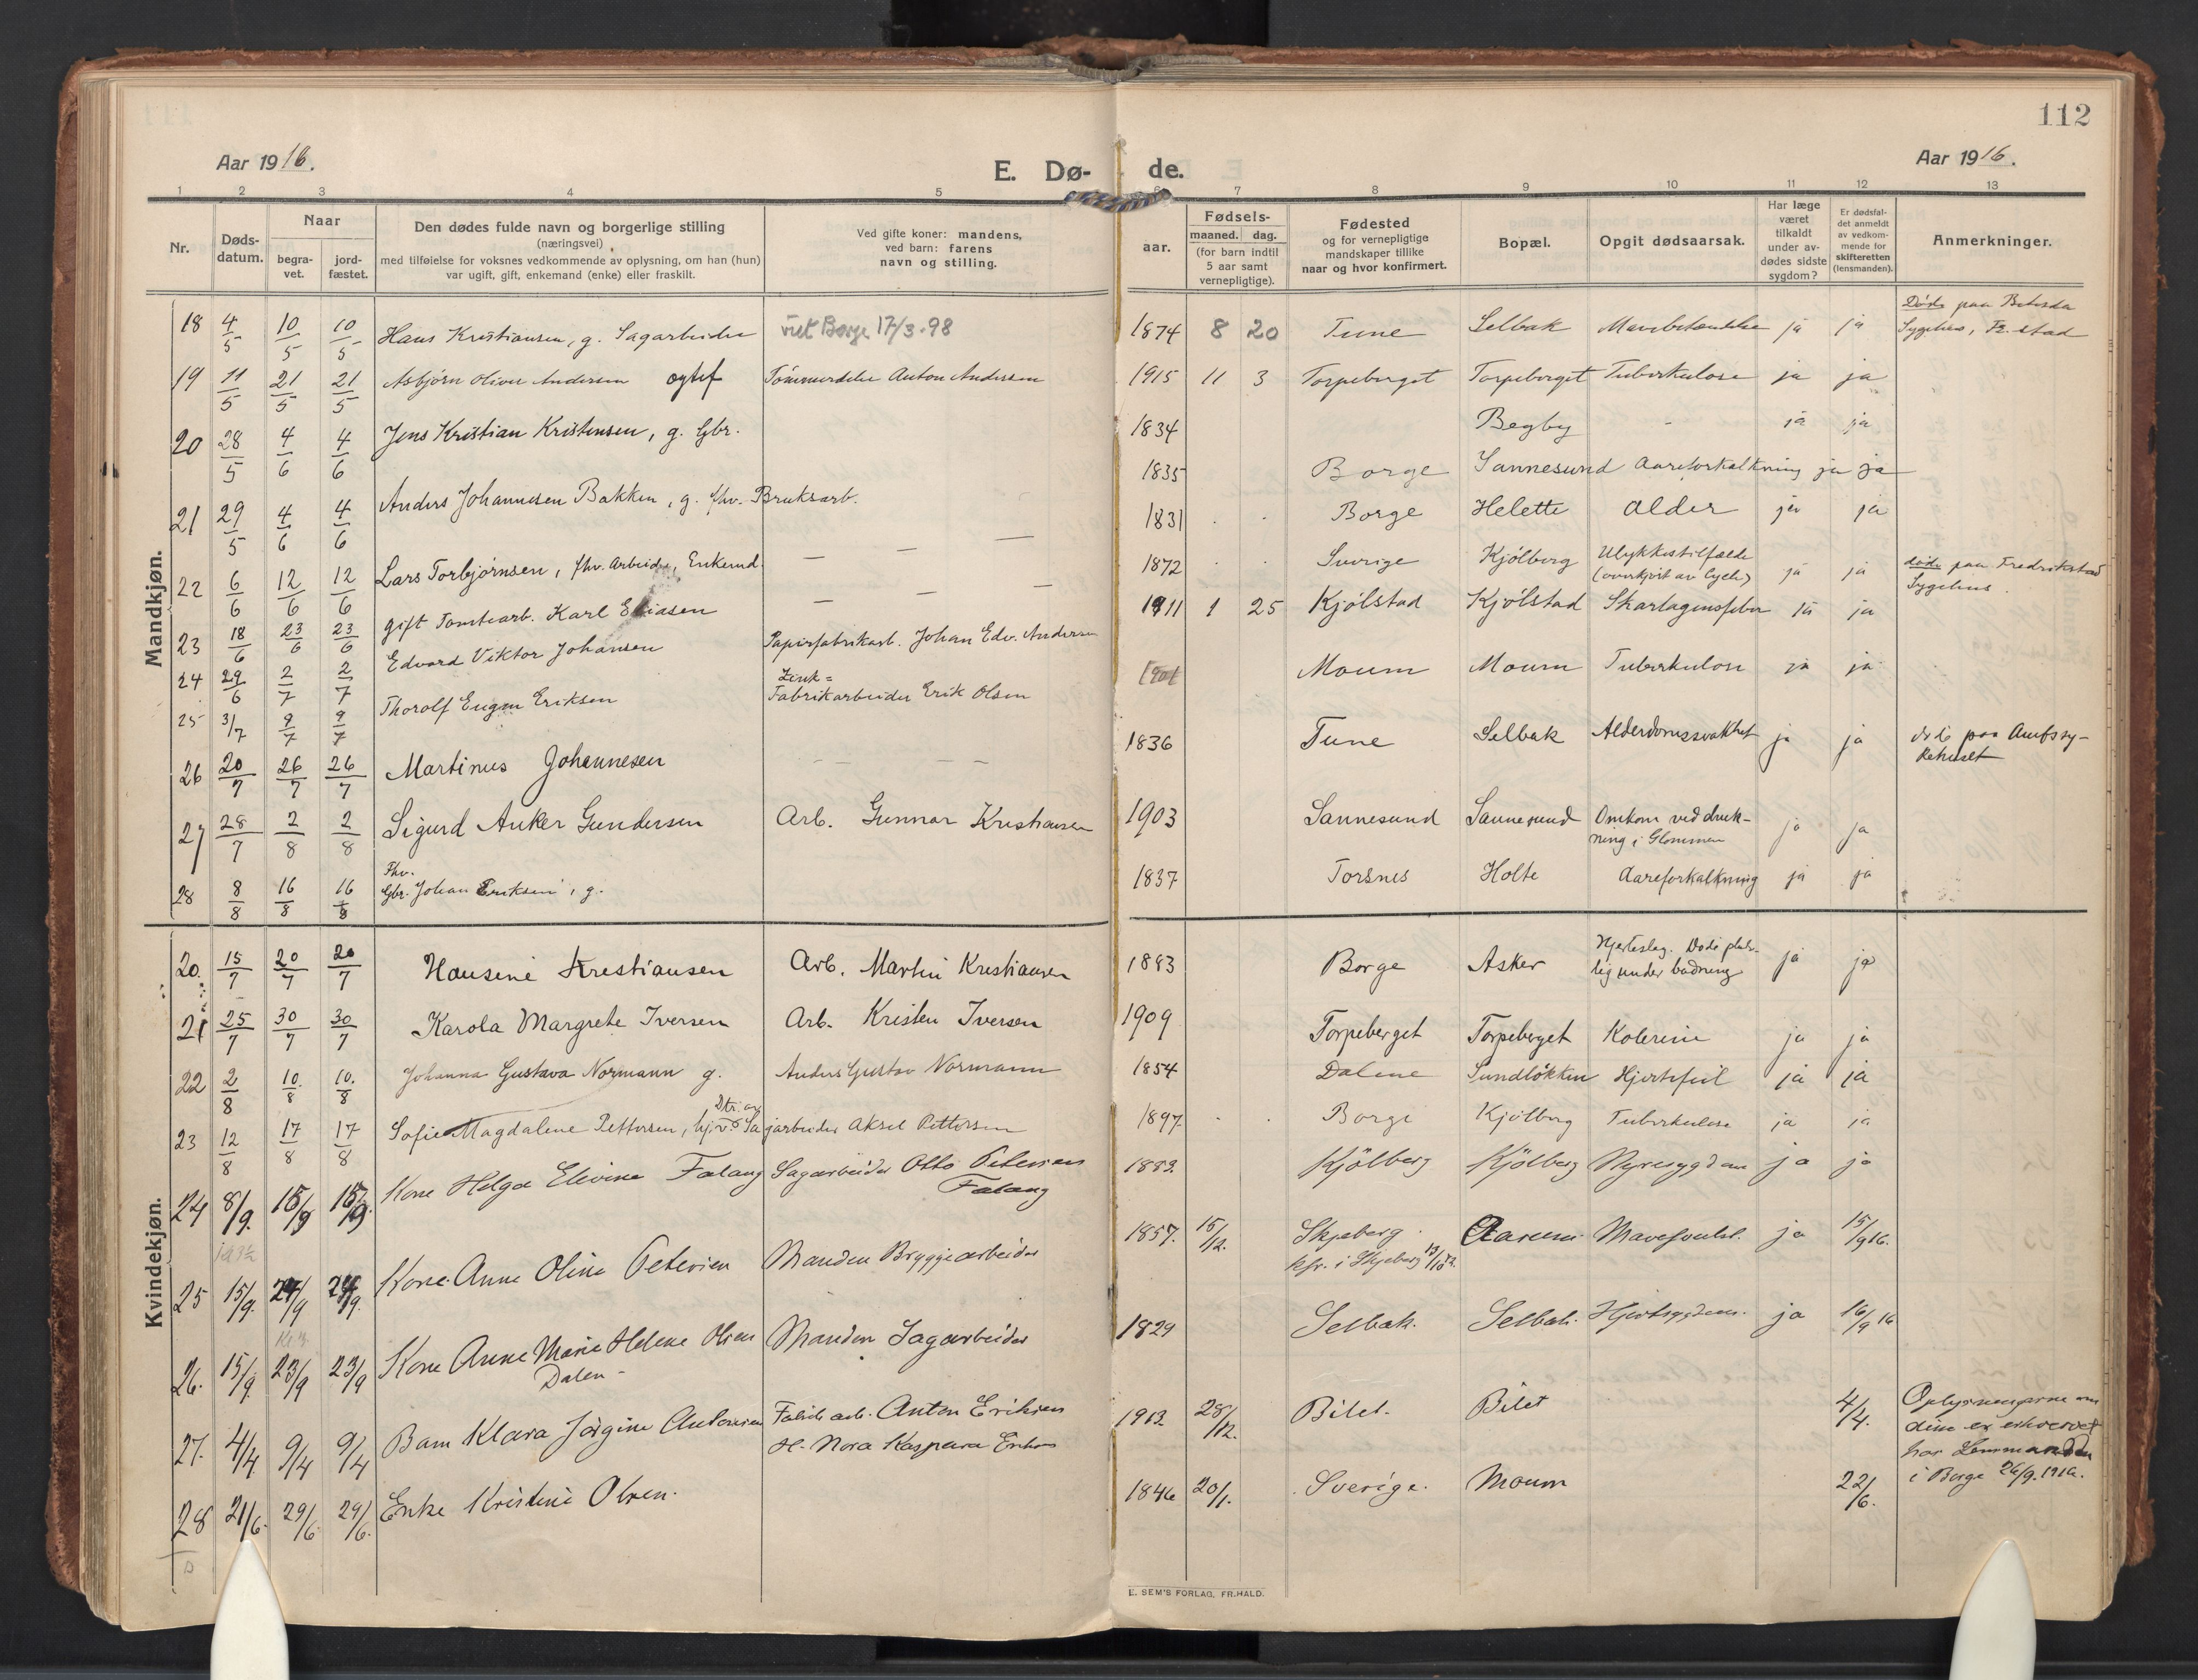 112
Aar 1916.
E. Dø-
de.
Aar 1916.
1 2 3 4 5 6 7 8 9 10 11 12 13
Nr.
Døds-
datum.
Naar
begra-
vet.
jord-
fæstet.
Den dødes fulde navn og borgerlige stilling
(næringsvei)
med tilføielse for voksnes vedkommende av oplysning, om han (hun)
var ugift, gift, enkemand (enke) eller fraskilt.
Ved gifte koner: mandens,
ved barn: farens
navn og stilling.
aar.
Fødsels-
maaned. dag.
(for barn indtil
5 aar samt
vernepligtige).
Fødested
og for vernepligtige
mandskaper tillike
naar og hvor konfirmert.
Bopæl.
Opgit dødsaarsak.
Har læge
været
tilkaldt
under av-
dødes sidste
sygdom?
Er dødsfal-
det anmeldt
av vedkom-
mende for
skifteretten
(lensmanden).
Anmerkninger.
Mandkjøn.
18 4/5 10/5 10/5 Hans Kristiansen, g. Sagarbeider viet Borge 17/3-98 1874 8 20 Tune Selbak Mavebetændelse ja ja Døde paa Betesda
Sygehus, Fr.stad
19 11/5 21/5 21/5 Asbjørn Oliver Andersen Tømmerdeler Anton Andersen 1915 11 3 Torpeberget Torpeberget Tuberkulose ja ja
20 28/5 4/6 4/6 Jens Kristian Kristensen, g. Gbr. 1834 Begby - ja ja
21 29/5 4/6 4/6 Anders Johannesen Bakken, g. fhv. Bruksarb. 1835 Borge Sannesund Aareforkalkning ja ja
22 6/6 12/6 12/6 Lars Torbjørnsen, fhv. Arbeider, Enkemd. 1831 Borge Helette Alder ja ja
23 18/6 23/6 23/6 gift Tomtearb. Karl Eliasen 1872 Sverige Kjølberg Ulykkestilfælde
(overkjørt av Cycle) ja ja døde paa Fredrikstad
Sygehus.
24 29/6 2/7 2/7 Edvard Viktor Johansen Papirfabrikarb. Johan Edv. Andersen 1911 1 25 Kjølstad Kjølstad Skarlagensfeber ja ja
25 3/7 9/7 9/7 Thorolf Eugen Eriksen Zink=
Fabrikarbeider Erik Olsen 1901 Moum Moum Tuberkulose ja ja
26 20/7 26/7 26/7 Martinus Johannesen 1836 Tune Selbak Alderdomssvakhet ja ja døde paa Amtssy-
kehuset
27 28/7 2/8 2/8 Sigurd Anker Gundersen Arb. Gunnar Kristiansen 1903 Sannesund Sannesund Omkom ved druk-
ning i Glommen ja ja
28 8/8 16/8 16/8 Fhv.
Gbr. Johan Eriksen, g. 1837 Torsnes Holte Aareforkalkning ja ja
Kvindekjøn.
20. 15/7 20/7 20/7 Hansine Kristiansen Arb. Martin Kristiansen 1883 Borge Asker Hjerteslag. Døde pluds-
lig under badning ja ja
21 25/7 30/7 30/7 Karola Margrete Iversen Arb. Kristen Iversen 1909 Torpeberget Torpeberget Kolerine ja ja
22 2/8 10/8 10/8 Johanna Gustava Normann g. Anders Gustav Normann 1854 Dalene Sundløkken Hjertefeil ja ja
23 12/8 17/8 17/8 Sofie Magdalene Pettersen, hjv. Dtr. av
Sagarbeider Aksel Pettersen 1897 Borge Kjølberg Tuberkulose ja ja
24 8/9. 15/9 15/9. Kone Helga Elevine Falang Sagarbeider Otto Petersen
Falang 1882. Kjølberg Kjølberg Nyresygdom ja ja
25 15/9. 24/9 24/9. Kone Anne Oline Petersen Manden Bryggearbeider 1857. 15/12. Skjeberg.
kfr. i Skjeberg Mavesvulst. ja 15/9 16.
26. 15/9. 23/9 23/9 Kone Anne Marie Helene Olsen
Dalen - Manden Sagarbeider 1829 Selbak. Selbak. Hjertesygdom. ja 16/9 16
27. 4/4. 9/4 9/4 Barn Klara Jørgine Antonsen Fabrik arb. Anton Eriksen
H. Nora Kaspara 1912. 28/12. Bilet. Bilet 4/4. Oplysningerne om
er erhvervet
hos Lensmanden
i Borge 26/9.1916.
28 21/6. 29/6 29/6. Enke Kristine Olsen. 1846 20/1. Sverige. Moum 22/6.
E. SEM'S FORLAG, FR.HALD.